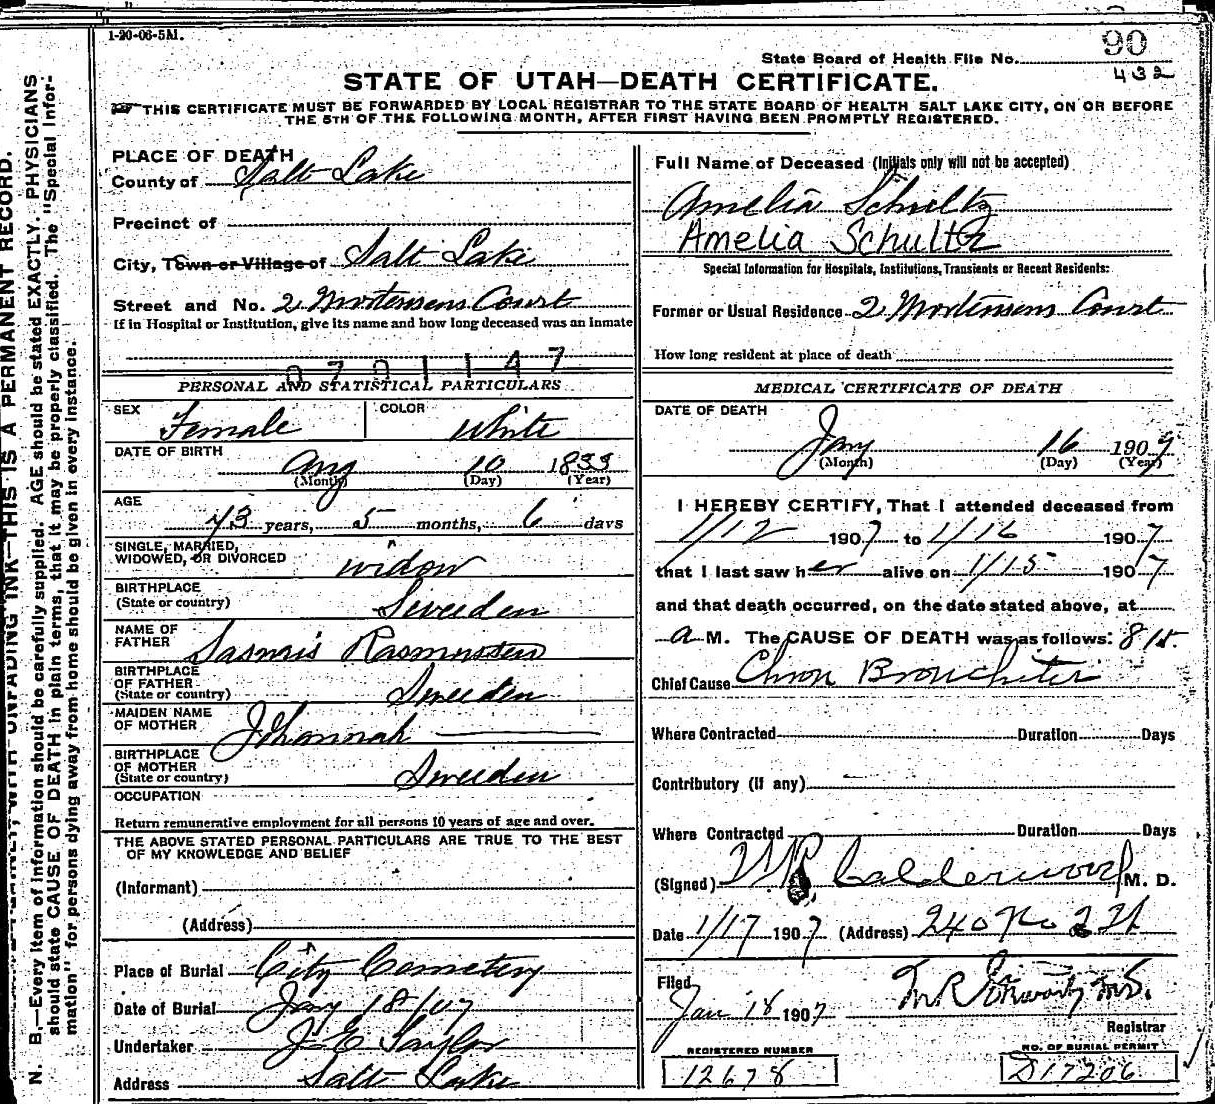 1-20-06-5M.
90
State Board of Health File No.
432
STATE OF UTAH—DEATH CERTIFICATE.
THIS CERTIFICATE MUST BE FORWARDED BY LOCAL REGISTRAR TO THE STATE BOARD OF HEALTH SALT LAKE CITY, ON OR BEFORE
THE 5TH OF THE FOLLOWING MONTH, AFTER FIRST HAVING BEEN PROMPTLY REGISTERED.
N. B.—Every item of information should be carefully supplied. AGE should be stated EXACTLY. PHYSICIANS
should state CAUSE OF DEATH in plain terms, that it may be properly classified. The "Special Infor-
mation" for persons dying away from home should be given in every instance.
WITH UNFADING INK—THIS IS A PERMANENT RECORD.
PLACE OF DEATH
County of Salt Lake
Precinct of
City, Town or Village of Salt Lake
Street and No. 2 Mortensens Court
If in Hospital or Institution, give its name and how long deceased was an inmate
0701147
PERSONAL AND STATISTICAL PARTICULARS
SEX Female COLOR White
DATE OF BIRTH
Aug 10 1833
(Month) (Day) (Year)
AGE
73 years, 5 months, 6 days
SINGLE, MARRIED,
WIDOWED, OR DIVORCED widow
BIRTHPLACE
(State or country) Sweeden
NAME OF
FATHER Rasmussen
BIRTHPLACE
OF FATHER
(State or country) Sweeden
MAIDEN NAME
OF MOTHER Johannah
BIRTHPLACE
OF MOTHER
(State or country) Sweeden
OCCUPATION
Return remunerative employment for all persons 10 years of age and over.
THE ABOVE STATED PERSONAL PARTICULARS ARE TRUE TO THE BEST
OF MY KNOWLEDGE AND BELIEF
(Informant)
(Address)
Place of Burial City Cemetery
Date of Burial Jany 18/07
Undertaker J E Taylor
Address Salt Lake
Full Name of Deceased (Initials only will not be accepted)
Amelia Schultz
Amelia Schultz
Special Information for Hospitals, Institutions, Transients or Recent Residents:
Former or Usual Residence 2 Mortensens Court
How long resident at place of death
MEDICAL CERTIFICATE OF DEATH
DATE OF DEATH
Jany 16 1907
(Month) (Day) (Year)
I HEREBY CERTIFY, That I attended deceased from
1/12 1907 to 1/16 1907
that I last saw her alive on 1/15 1907
and that death occurred, on the date stated above, at
a M. The CAUSE OF DEATH was as follows: 815
Chief Cause Chron Bronchitis
Where Contracted Duration Days
Contributory (if any)
Where Contracted Duration Days
(Signed) Calderwood M. D.
Date 1/17 1907 (Address) 240 No 2
Filed
Jan 18 1907
Registrar
REGISTERED NUMBER
12678
NO. OF BURIAL PERMIT
D17206